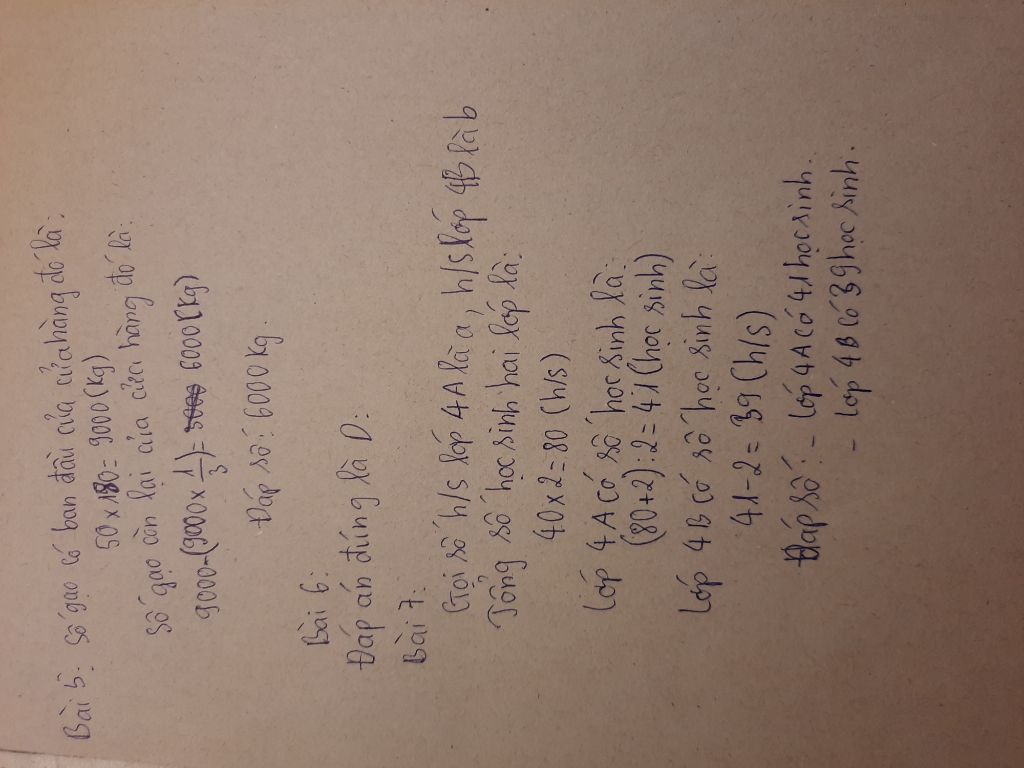 Bài 5: Số gạo có ban đầu của cửa hàng đó là:
50 x 180 = 9000 (kg)
Số gạo còn lại của cửa hàng đó là:
9000 - (9000 x 1/3) = 6000 (kg)
Đáp số: 6000 kg.
Bài 6:
Đáp án đúng là D.
Bài 7:
Gọi số h/s lớp 4A là a, h/s lớp 4B là b
Tổng số học sinh hai lớp là:
40 x 2 = 80 (h/s)
Lớp 4A có số học sinh là:
(80+2) : 2 = 41 (học sinh)
Lớp 4B có số học sinh là:
41 - 2 = 39 (h/s)
Đáp số: - Lớp 4A có 41 học sinh.
- Lớp 4B có 39 học sinh.